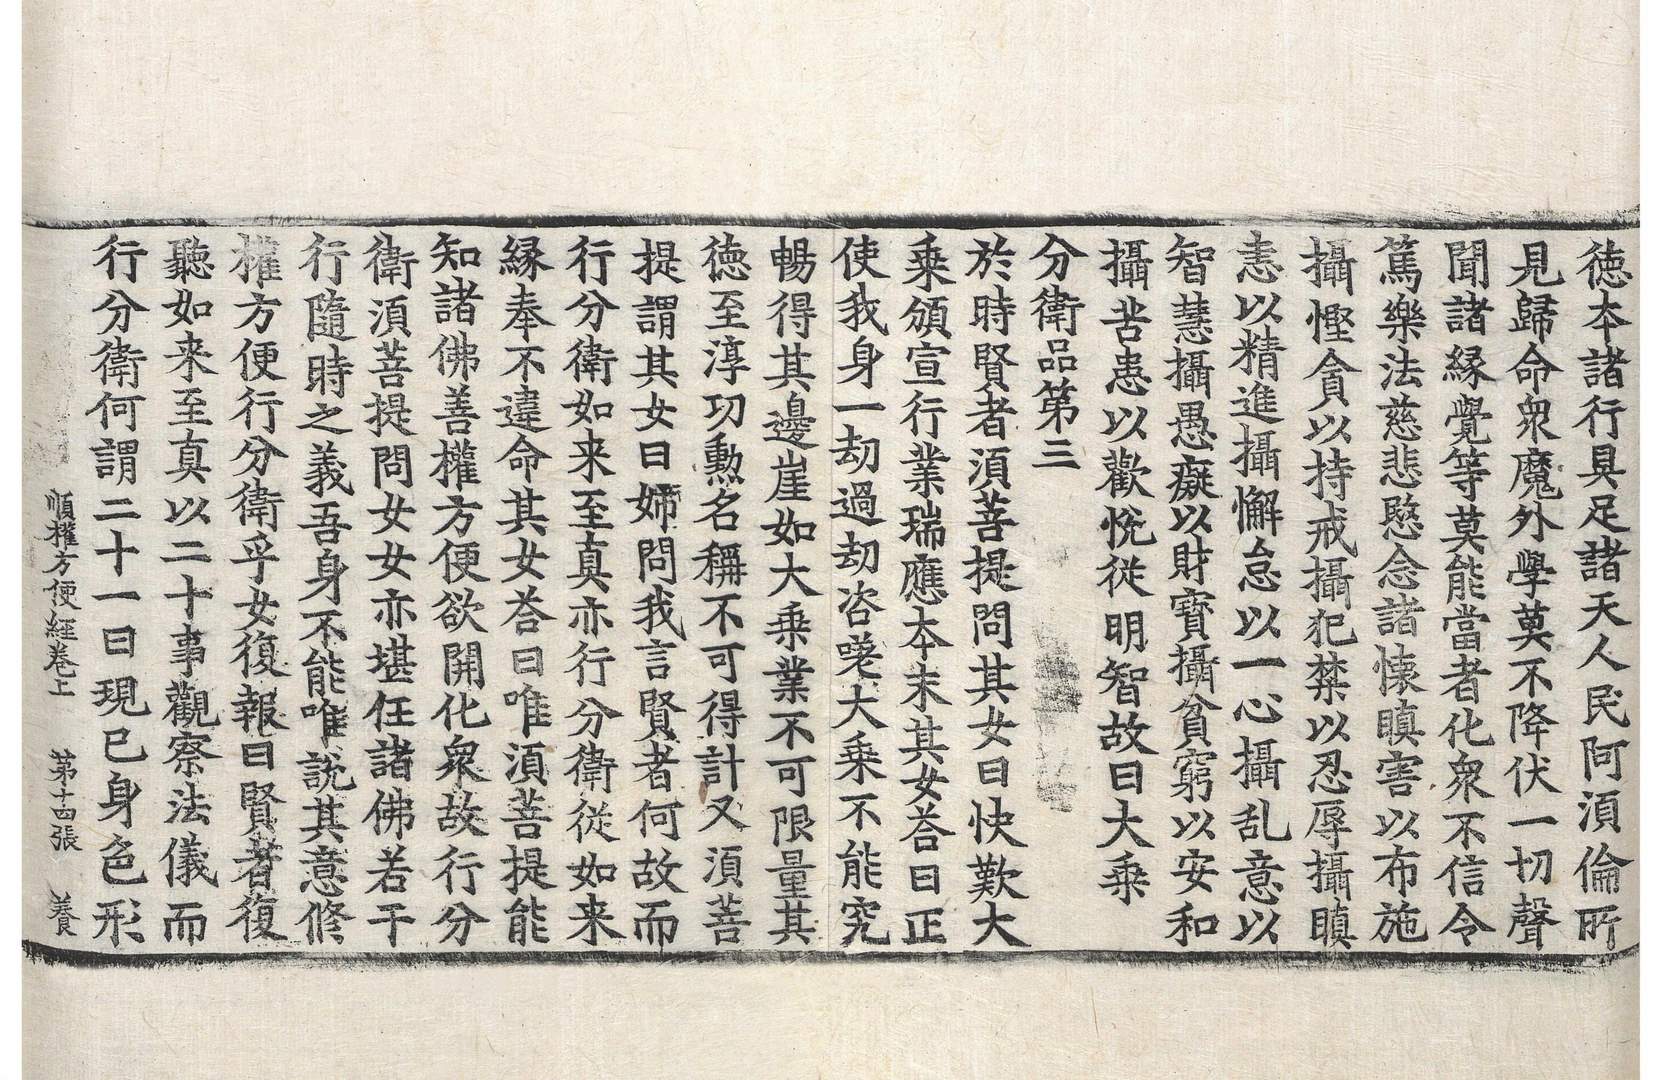 徳本諸行具足諸天人民阿須倫所
見歸命衆魔外學莫不降伏一切聲
聞諸縁覺等莫能當者化衆不信令
篤樂法慈悲愍念諸懐瞋害以布施
攝慳貪以持戒攝犯禁以忍辱攝瞋
恚以精進攝懈怠以一心攝乱意以
智慧攝愚癡以財寶攝貧窮以安和
攝苦患以歡悅從明智故曰大乗
分衛品第三
於時賢者須菩提問其女曰快歎大
乗頒宣行業瑞應本末其女荅曰正
使我身一劫過劫咨嗟大乗不能究
暢得其邊崖如大乗業不可限量其
徳至淳功勲名稱不可得計又須菩
提謂其女曰姉問我言賢者何故而
行分衛如来至真亦行分衛從如来
縁奉不違命其女荅曰唯須菩提能
知諸佛善權方便欲開化衆故行分
衛須菩提問女女亦堪任諸佛若干
行隨時之義吾身不能唯說其意修
權方便行分衛乎女復報曰賢者復
聽如来至真以二十事觀察法儀而
行分衛何謂二十一曰現已身色形
順權方便經卷上 第十四張 養